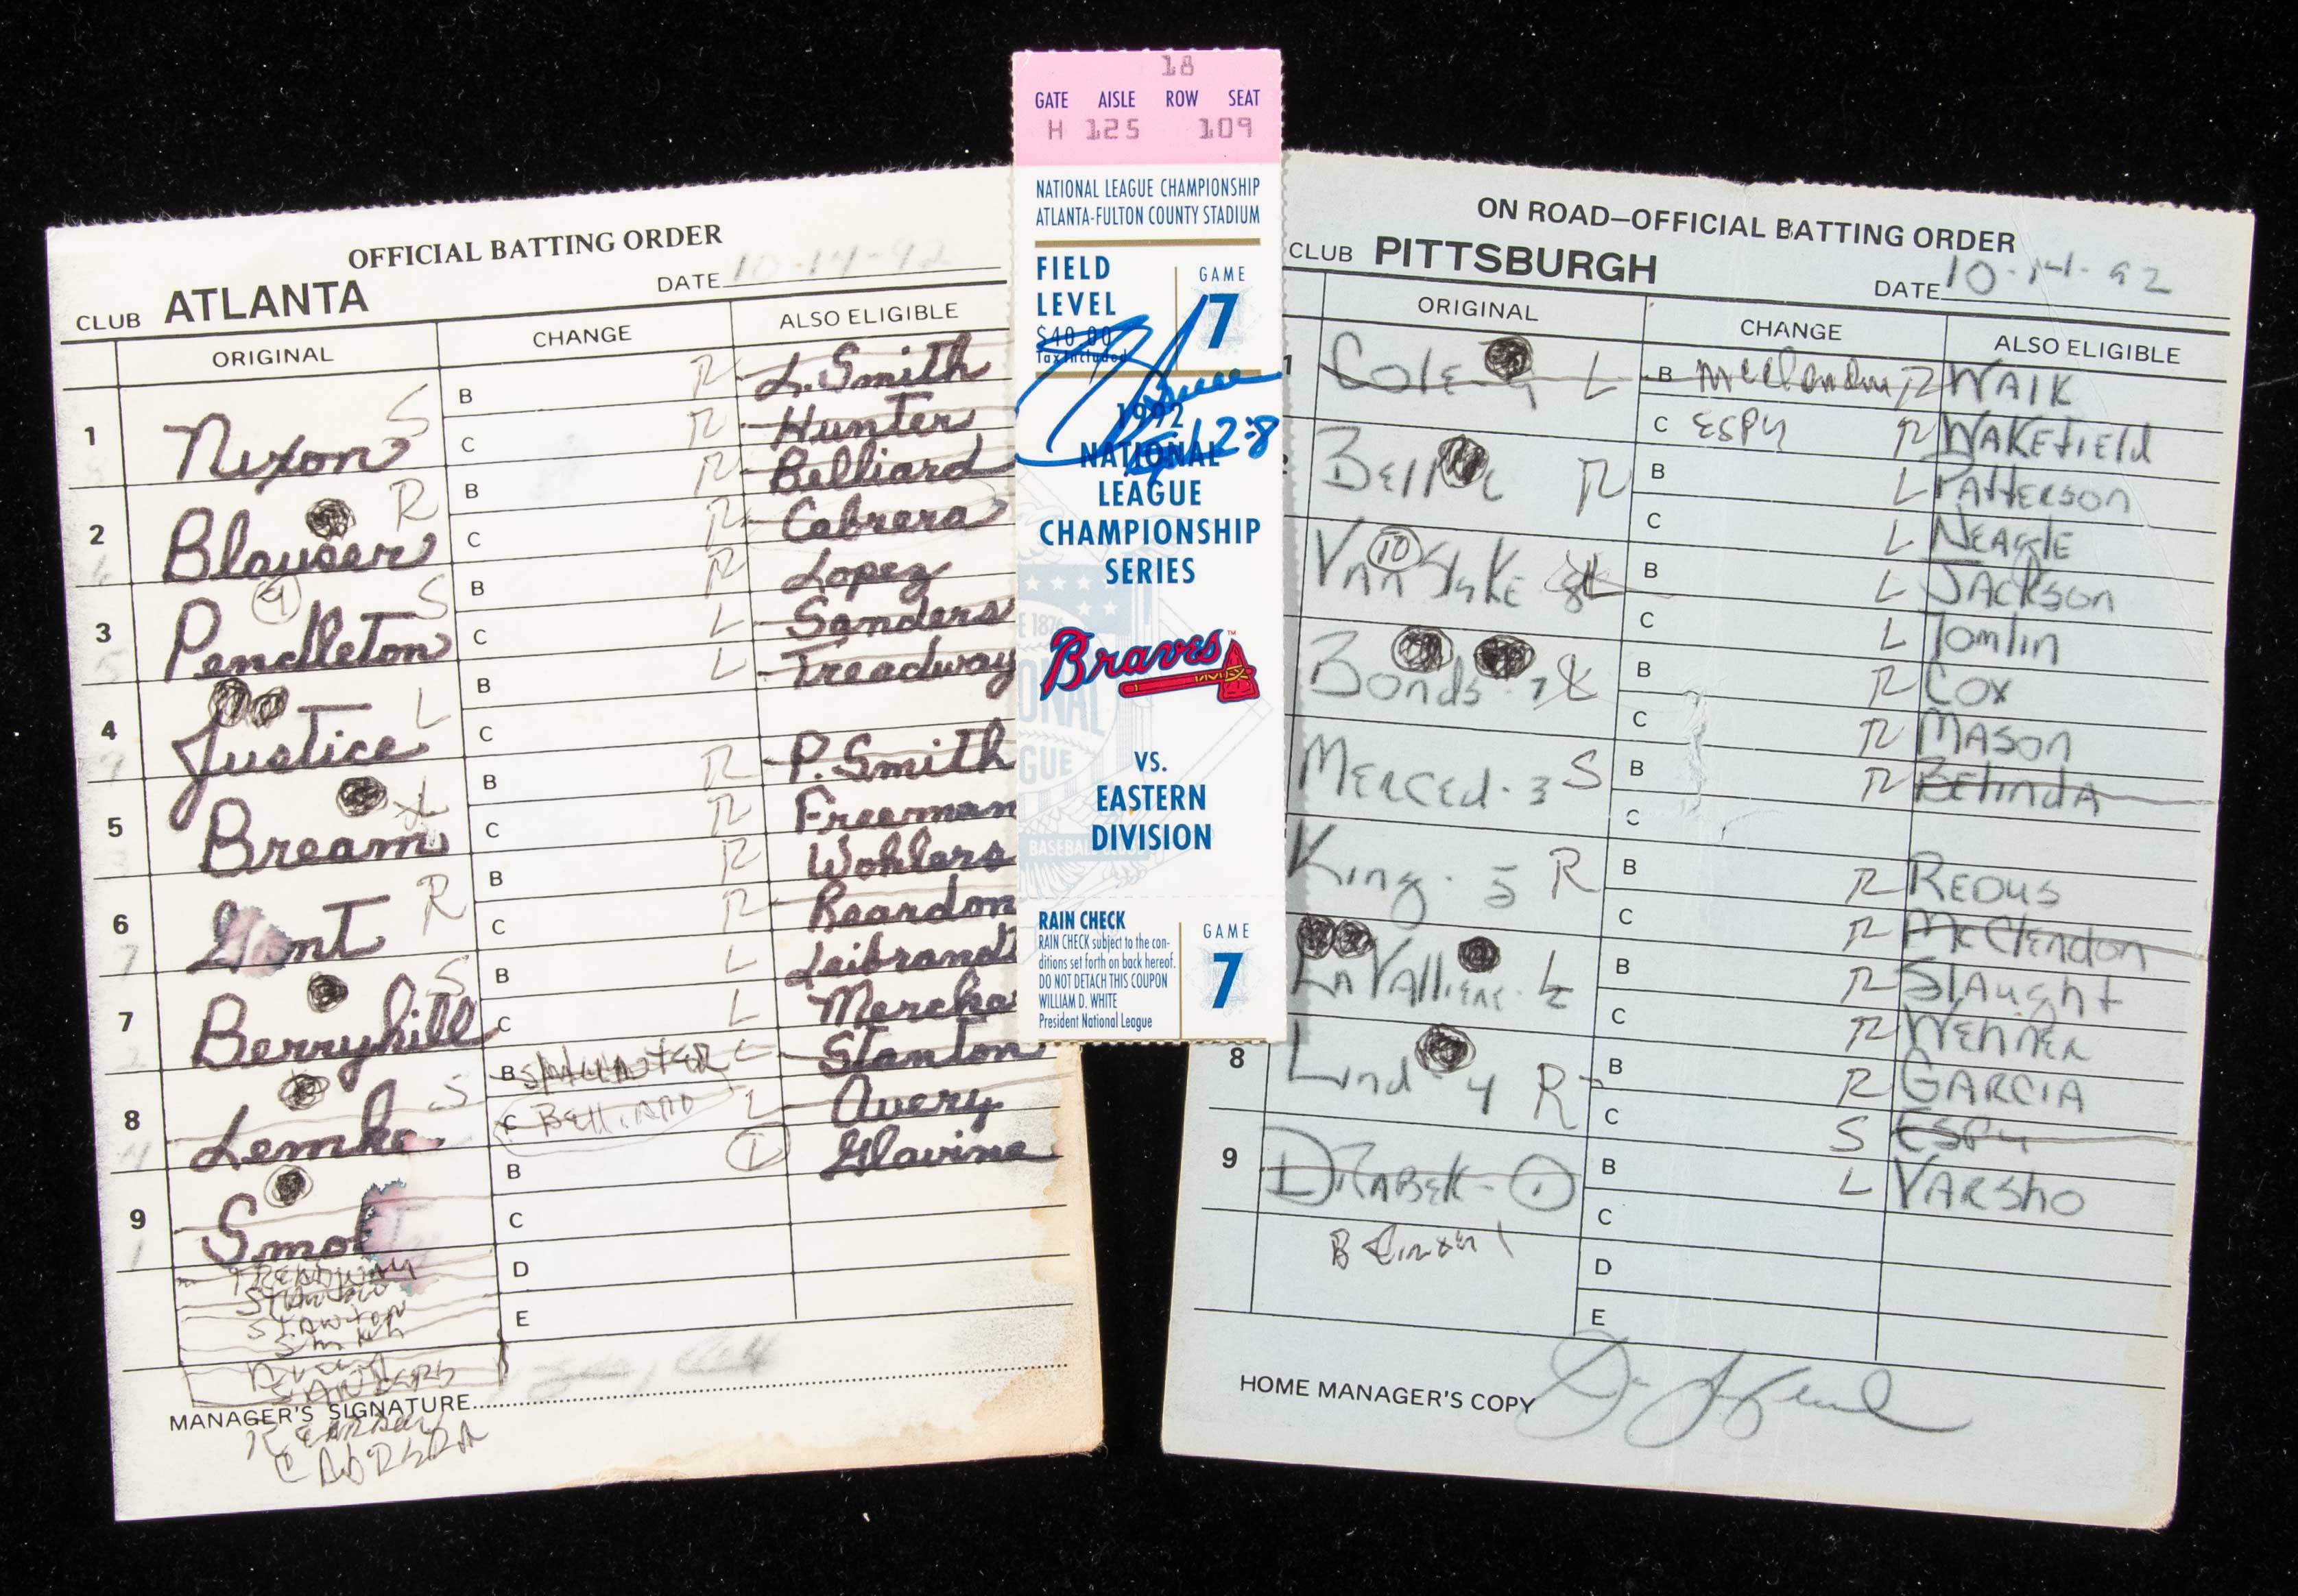 OFFICIAL BATTING ORDER
CLUB ATLANTA DATE 10-14-92
ORIGINAL CHANGE ALSO ELIGIBLE
1 Nixon S B R L. Smith
C R Hunter
2 Blauser R B R Belliard
C R Cabrera
3 Pendleton S B R Lopez
C L Sanders
4 Justice L B L Treadway
C
5 Bream L B R P. Smith
C R Freeman
6 Gant R B R Wohlers
C R Reardon
7 Berryhill S B L Leibrandt
C L Mercke
8 Lemke S B L Stanton
C BELLIARD L Avery
9 Smol B Glavine
C
D
E
TREADWAY
STANTON
SMITH
AVERY
SANDERS
MANAGER'S SIGNATURE
REARDON
CABRERA
18
GATE AISLE ROW SEAT
H 125 109
NATIONAL LEAGUE CHAMPIONSHIP
ATLANTA-FULTON COUNTY STADIUM
FIELD
LEVEL
$40.00
Tax Included
GAME
7
1992
NATIONAL
LEAGUE
CHAMPIONSHIP
SERIES
Braves
VS.
EASTERN
DIVISION
RAIN CHECK
RAIN CHECK subject to the con-
ditions set forth on back hereof.
DO NOT DETACH THIS COUPON
WILLIAM D. WHITE
President National League
GAME
7
ON ROAD—OFFICIAL BATTING ORDER
CLUB PITTSBURGH DATE 10-14-92
ORIGINAL CHANGE ALSO ELIGIBLE
1 Cole L B McClendon R WALK
C ESPY R WAKEfiEld
Bell R B L PATTERSON
C L NEAGLE
VAn SlyKE L B L JACKSON
C L Tomlin
Bonds 7 L B R COX
C R MASON
MERCEd-3 S B R BElindA
C
King-5 R B R REDUS
C R McClendon
LAVAlliERE L B R SlAught
C R WEHNER
8 Lind 4 R B R GARCIA
C S ESPY
9 DRABEK-1 B L VARSHO
C
D
E
HOME MANAGER'S COPY